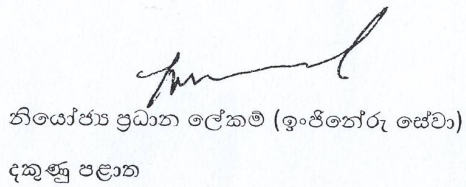 නියෝජ්‍ය ප්‍රධාන ලේකම් (ඉංජිනේරු සේවා)
දකුණු පළාත